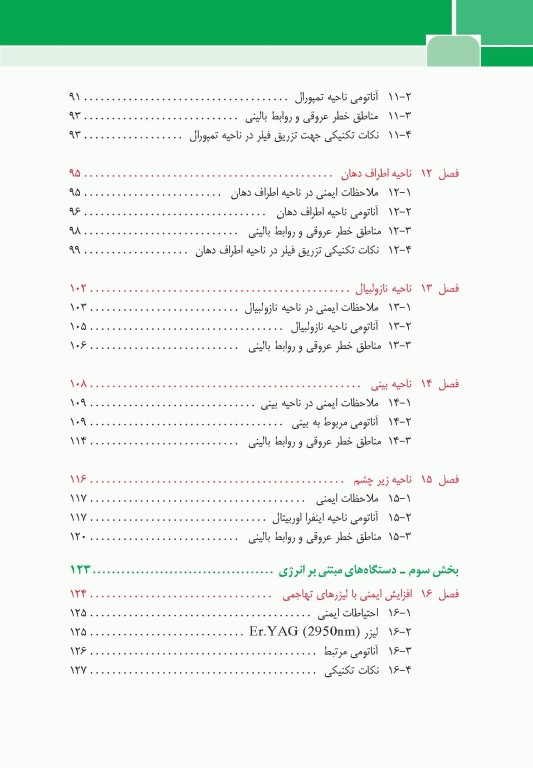 ۱۱-۲ آناتومی ناحیه تمپورال ..................................... ۹۱
۱۱-۳ مناطق خطر عروقی و روابط بالینی ............................ ۹۳
۱۱-۴ نکات تکنیکی جهت تزریق فیلر در ناحیه تمپورال .................. ۹۳
فصل ۱۲ ناحیه اطراف دهان ............................................. ۹۵
۱۲-۱ ملاحظات ایمنی در ناحیه اطراف دهان ......................... ۹۵
۱۲-۲ آناتومی ناحیه اطراف دهان ................................. ۹۶
۱۲-۳ مناطق خطر عروقی و روابط بالینی ............................ ۹۸
۱۲-۴ نکات تکنیکی تزریق فیلر در ناحیه اطراف دهان ................... ۹۹
فصل ۱۳ ناحیه نازولبیال ............................................... ۱۰۲
۱۳-۱ ملاحظات ایمنی در ناحیه نازولبیال ........................... ۱۰۳
۱۳-۲ آناتومی ناحیه نازولبیال ................................... ۱۰۵
۱۳-۳ مناطق خطر عروقی و روابط بالینی ........................... ۱۰۶
فصل ۱۴ ناحیه بینی ................................................. ۱۰۸
۱۴-۱ ملاحظات ایمنی در ناحیه بینی .............................. ۱۰۹
۱۴-۲ آناتومی مربوط به بینی ................................... ۱۰۹
۱۴-۳ مناطق خطر عروقی و روابط بالینی ........................... ۱۱۴
فصل ۱۵ ناحیه زیر چشم .............................................. ۱۱۶
۱۵-۱ ملاحظات ایمنی ....................................... ۱۱۷
۱۵-۲ آناتومی ناحیه اینفرا اوربیتال ................................ ۱۱۷
۱۵-۳ مناطق خطر عروقی و روابط بالینی ........................... ۱۲۰
بخش سوم ـ دستگاه‌های مبتنی بر انرژی ..................................... ۱۲۳
فصل ۱۶ افزایش ایمنی با لیزرهای تهاجمی ................................. ۱۲۴
۱۶-۱ احتیاطات ایمنی ........................................ ۱۲۵
۱۶-۲ لیزر Er.YAG (2950nm) ............................ ۱۲۵
۱۶-۳ آناتومی مرتبط ......................................... ۱۲۶
۱۶-۴ نکات تکنیکی ......................................... ۱۲۷